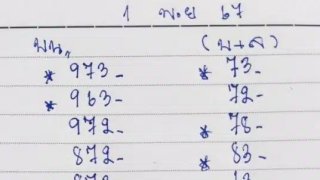 1 พ.ย 67
บน (บ+ล)
* 973- * 73-
* 963- 72-
972- * 78-
872- * 83-